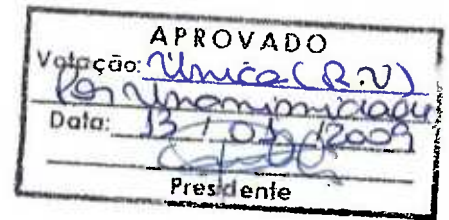 APROVADO
Votação: Única (R.V)
Por Unanimidade
Data: 13 / 01 / 2009
Presidente